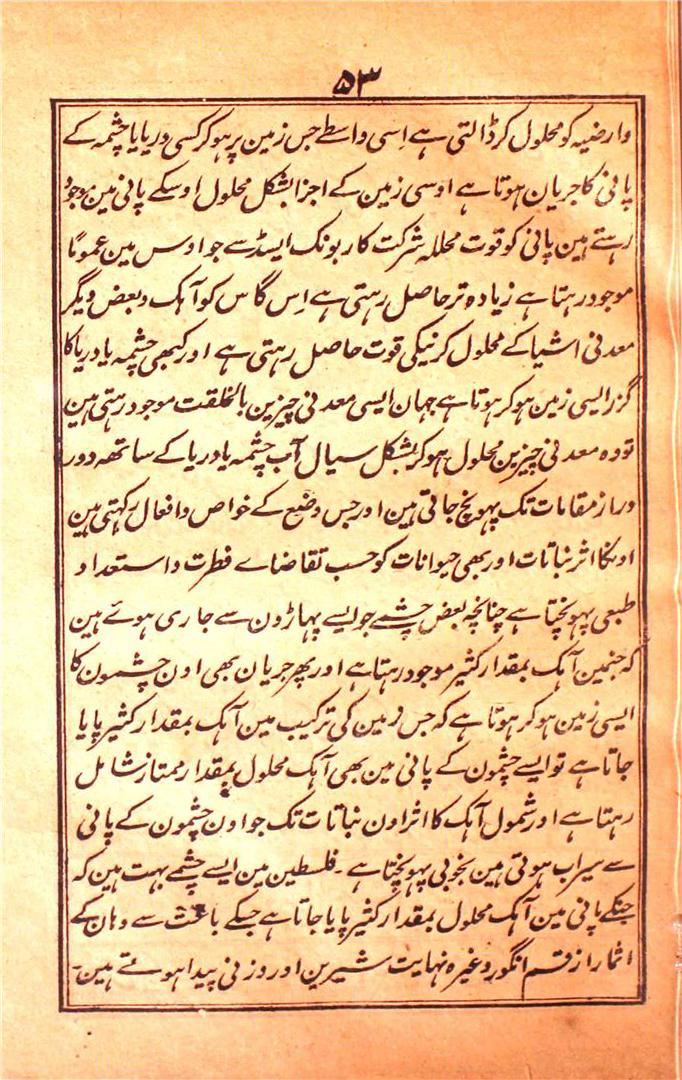 ۵۳
وارضیہ کو محلول کر ڈالتی ہے اِسی واسطے جس زمین پر ہو کر کسی دریا یا چشمہ کے
پانی کا جریان ہوتا ہے اوسی زمین کے اجزا بشکل محلول اوسکے پانی مین موجود
رہتے ہین پانی کو قوت محللہ شرکت کاربونک ایسڈ سے جو اوس مین عموماً
موجود رہتا ہے زیادہ تر حاصل رہتی ہے اِس گاس کو آہک و بعض دیگر
معدنی اشیا کے محلول کرنیکی قوت حاصل رہتی ہے اور کبھی چشمہ یا دریا کا
گزر ایسی زمین ہو کر ہوتا ہے جہان ایسی معدنی چیزین بالخلقت موجود رہتی ہین
تو وہ معدنی چیزین محلول ہو کر بشکل سیال آب چشمہ یا دریا کے ساتھہ دور
دراز مقامات تک پہونچ جاتی ہین اور جس وضع کے خواص و افعال رکہتی ہین
اونکا اثر نباتات اور بھی حیوانات کو حسب تقاضاے فطرت و استعداد
طبعی پہونچتا ہے چنانچہ بعض چشمے جو ایسے پہاڑون سے جاری ہوئے ہین
کہ جنمین آہک بمقدار کثیر موجود رہتا ہے اور پھر جریان بھی اون چشمون کا
ایسی زمین ہو کر ہوتا ہے کہ جس زمین کی ترکیب مین آہک بمقدار کثیر پایا
جاتا ہے تو ایسے چشمون کے پانی مین بھی آہک محلول بمقدار ممتاز شامل
رہتا ہے اور شمول آہک کا اثر اون نباتات تک جو اون چشمون کے پانی
سے سیراب ہوتی ہین بخوبی پہونچتا ہے ۔ فلسطین مین ایسے چشمے بہت ہین کہ
جنکے پانی مین آہک محلول بمقدار کثیر پایا جاتا ہے جسکے باعث سے وہان کے
اثمار از قسم انگور وغیرہ نہایت شیرین اور وزنی پیدا ہوتے ہین ۔